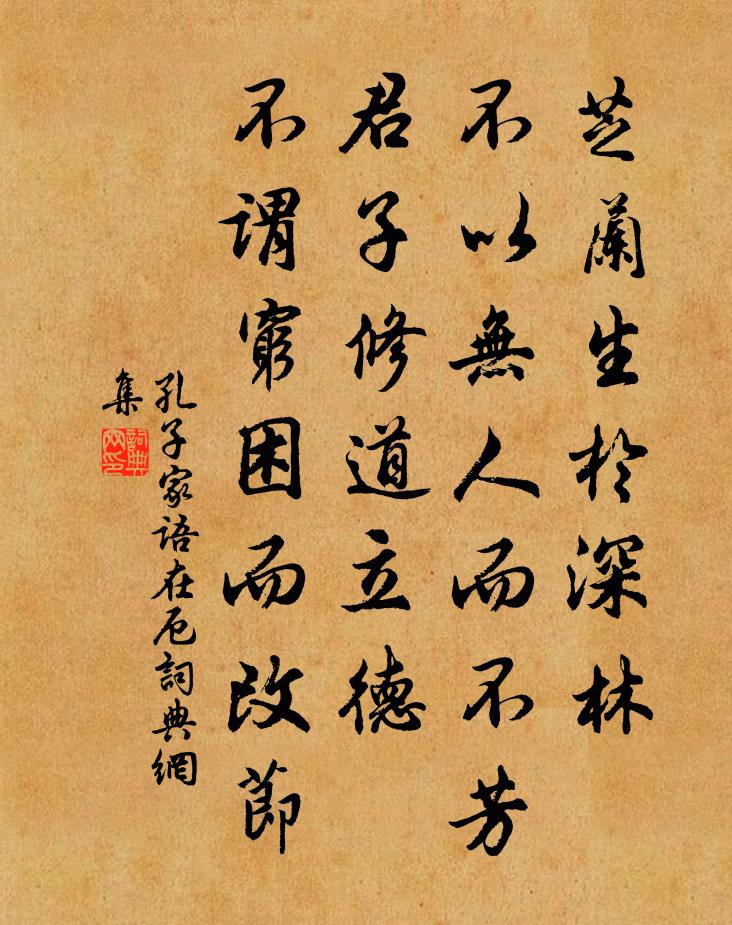 芝蘭生於深林
不以無人而不芳
君子修道立德
不謂窮困而改節
孔子家語在厄詞典網
集
詞典
网印